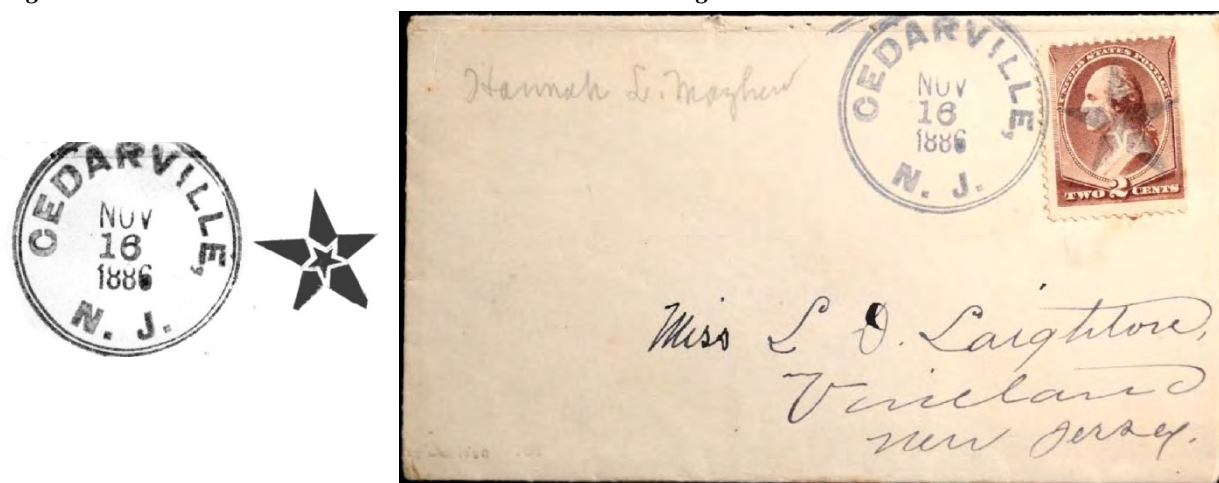 CEDARVILLE,
NOV
16
1886
N. J.
Hannah L. Mayhew
CEDARVILLE,
NOV
16
1886
N. J.
UNITED STATES POSTAGE
TWO 2 CENTS
Miss L D. Laightone,
Vineland
New Jersey.